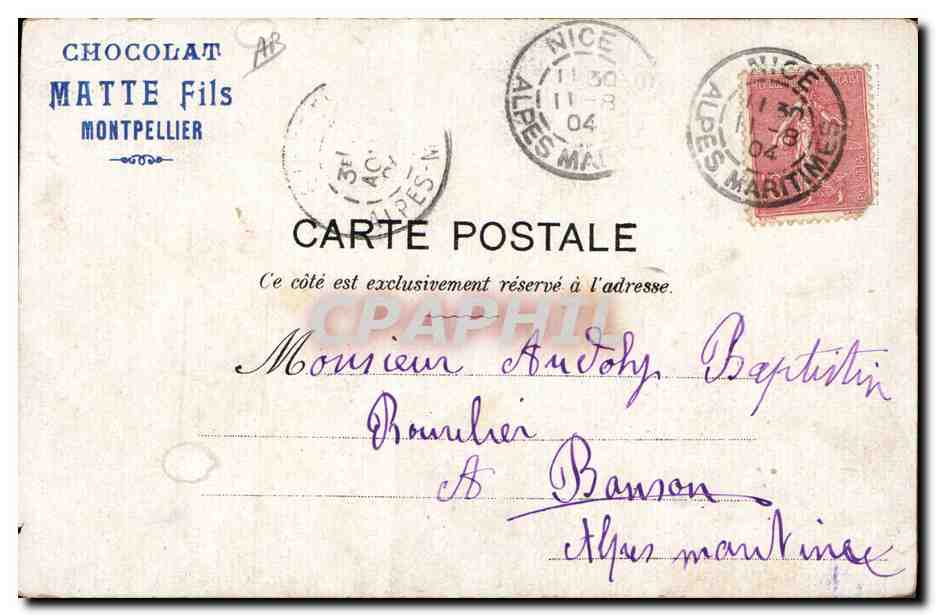 CHOCOLAT
MATTE Fils
MONTPELLIER
AB
NICE
11 30
11 - 8
04
ALPES MAR
NICE
11 30
11 - 8
04
ALPES MARITIMES
ALPES-M
CARTE POSTALE
Ce côté est exclusivement réservé à l'adresse.
CPAPHIL
Monsieur Audoly Baptistin
A Bauson
Alpes maritimes